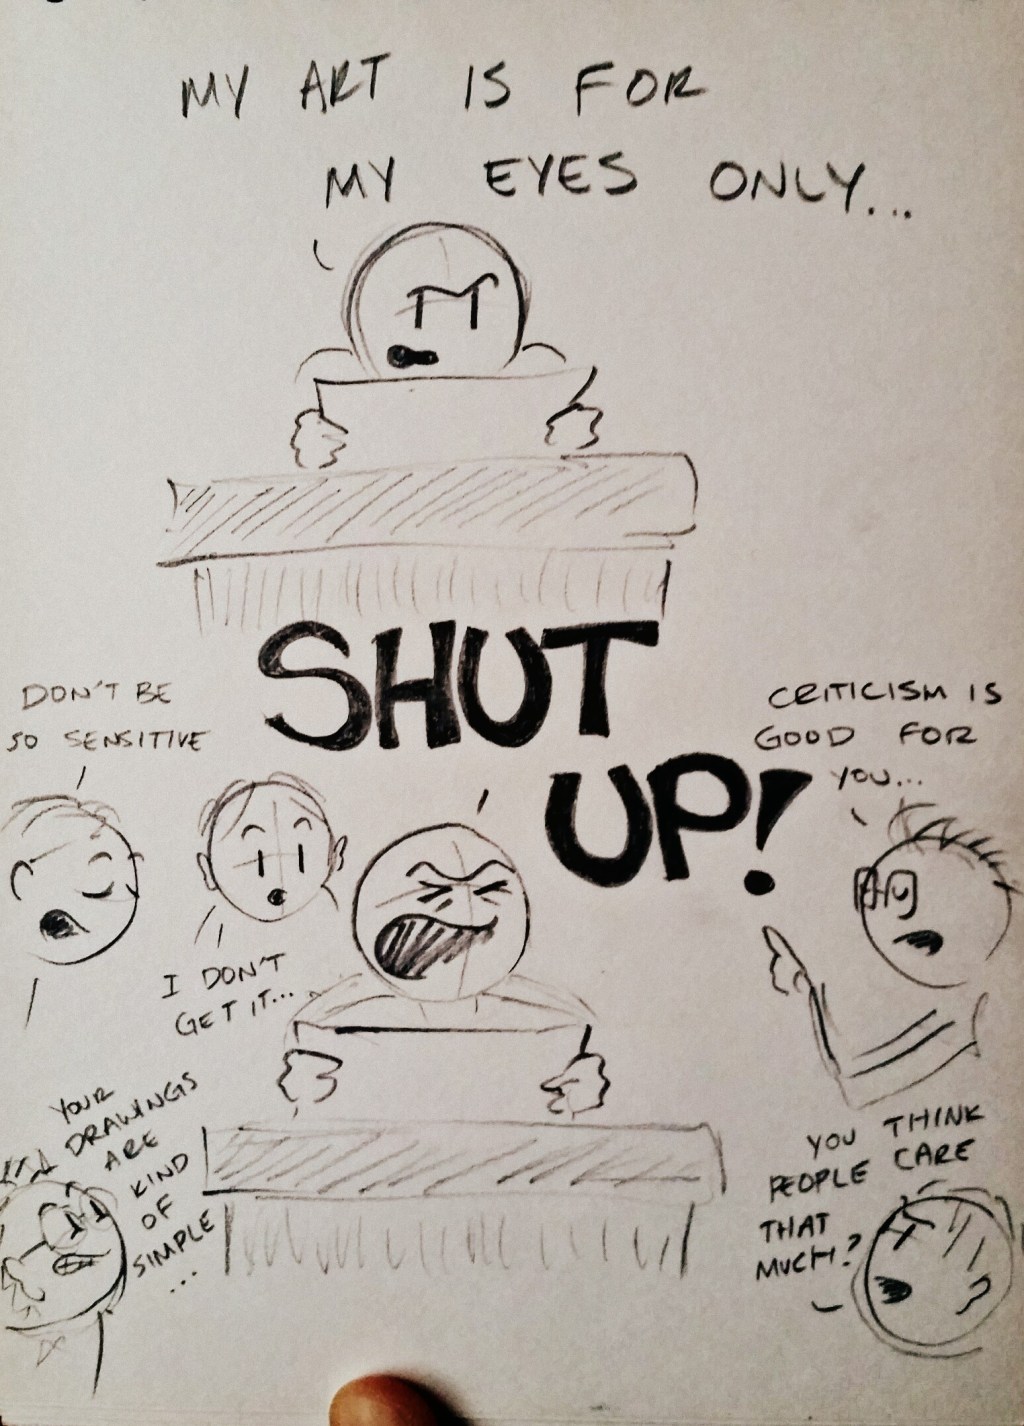 MY ART IS FOR
MY EYES ONLY...
SHUT
UP!
DON'T BE
SO SENSITIVE
CRITICISM IS
GOOD FOR
YOU...
I DON'T
GET IT...
YOUR
DRAWINGS
ARE
KIND
OF
SIMPLE
...
YOU THINK
PEOPLE CARE
THAT
MUCH?